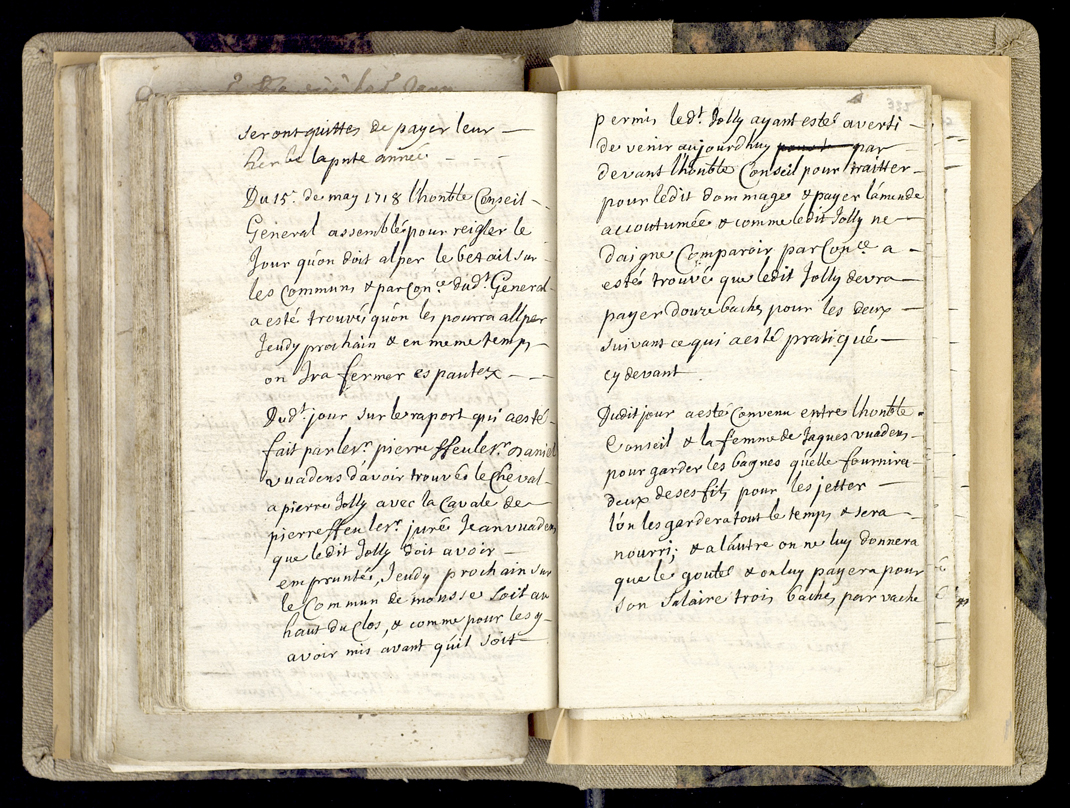 seront quittes de payer leur —
herbe la pnte année — —
Du 15e. de may 1718 lhonble Conseil —
General assemblé pour reigler le
Jour quón doit alper le betail sur
les Communs & par Conce. dudt. General
a esté trouvé quón les pourra allper
Jeudy prochain & en meme temps —
on Jra fermer es pautex — —
Dudt. jour sur le raport qui a esté
fait par le sr. pierre ffeu le sr. Daniel
vuadens d'avoir trouvés le Cheval —
a pierre Jolly avec la Cavale de —
pierre ffeu le sr. juré Jean vuadens
que ledit Jolly doit avoir —
emprunté, Jeudy prochain sur
le Commun de mousse soit au
haut du Clos, & comme pour les y
avoir mis avant qúil soit —
226
permis ledt. Jolly ayant estés averti
de venir aujourdhuy par
devant lhonble Conseil pour traitter —
pour ledit dommage & payer lámende
accoutumée & comme ledit Jolly ne —
daigne Comparoir par Conce. a —
estés trouvé que ledit Jolly devra —
payer douze baches pour les deux —
suivant ce qui a esté pratiqué —
cy devant
Dudit jour a esté Convenu entre lhonble
Conseil & la femme de Jaques vuadens
pour garder les bagnes qúelle fournira
deux de ses fils pour les jetter —
lún les gardera tout le temps & sera —
nourri; & a láutre on ne luy donnera
que le gouté & on luy payera pour
son Salaire trois baches par vache